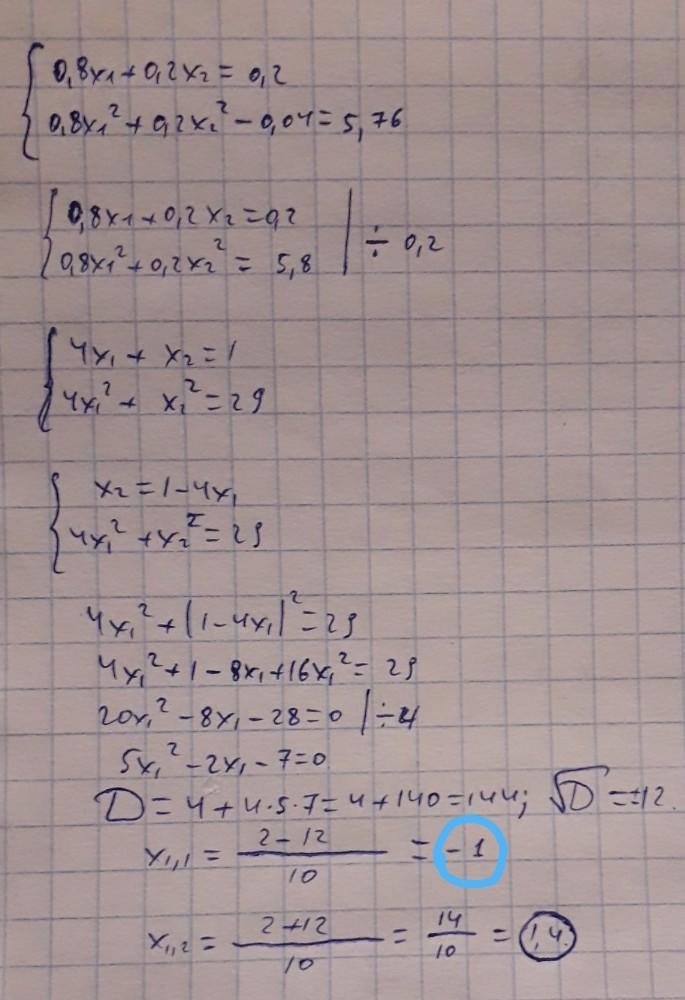 0,8x₁+0,2x₂ = 0,2
0,8x₁²+0,2x₂²-0,04=5,76
0,8x₁+0,2x₂=0,2
0,8x₁²+0,2x₂² = 5,8 | ÷ 0,2
4x₁ + x₂ = 1
4x₁² + x₂² = 29
x₂ = 1-4x₁
4x₁² + x₂² = 29
4x₁² + (1-4x₁)² = 29
4x₁² + 1 - 8x₁ + 16x₁² = 29
20x₁² - 8x₁ - 28 = 0 | ÷4
5x₁² - 2x₁ - 7 = 0
D = 4 + 4·5·7 = 4 + 140 = 144; √D = ±12.
x₁,₁ = (2-12)/10 = -1
x₁,₂ = (2+12)/10 = 14/10 = 1,4.